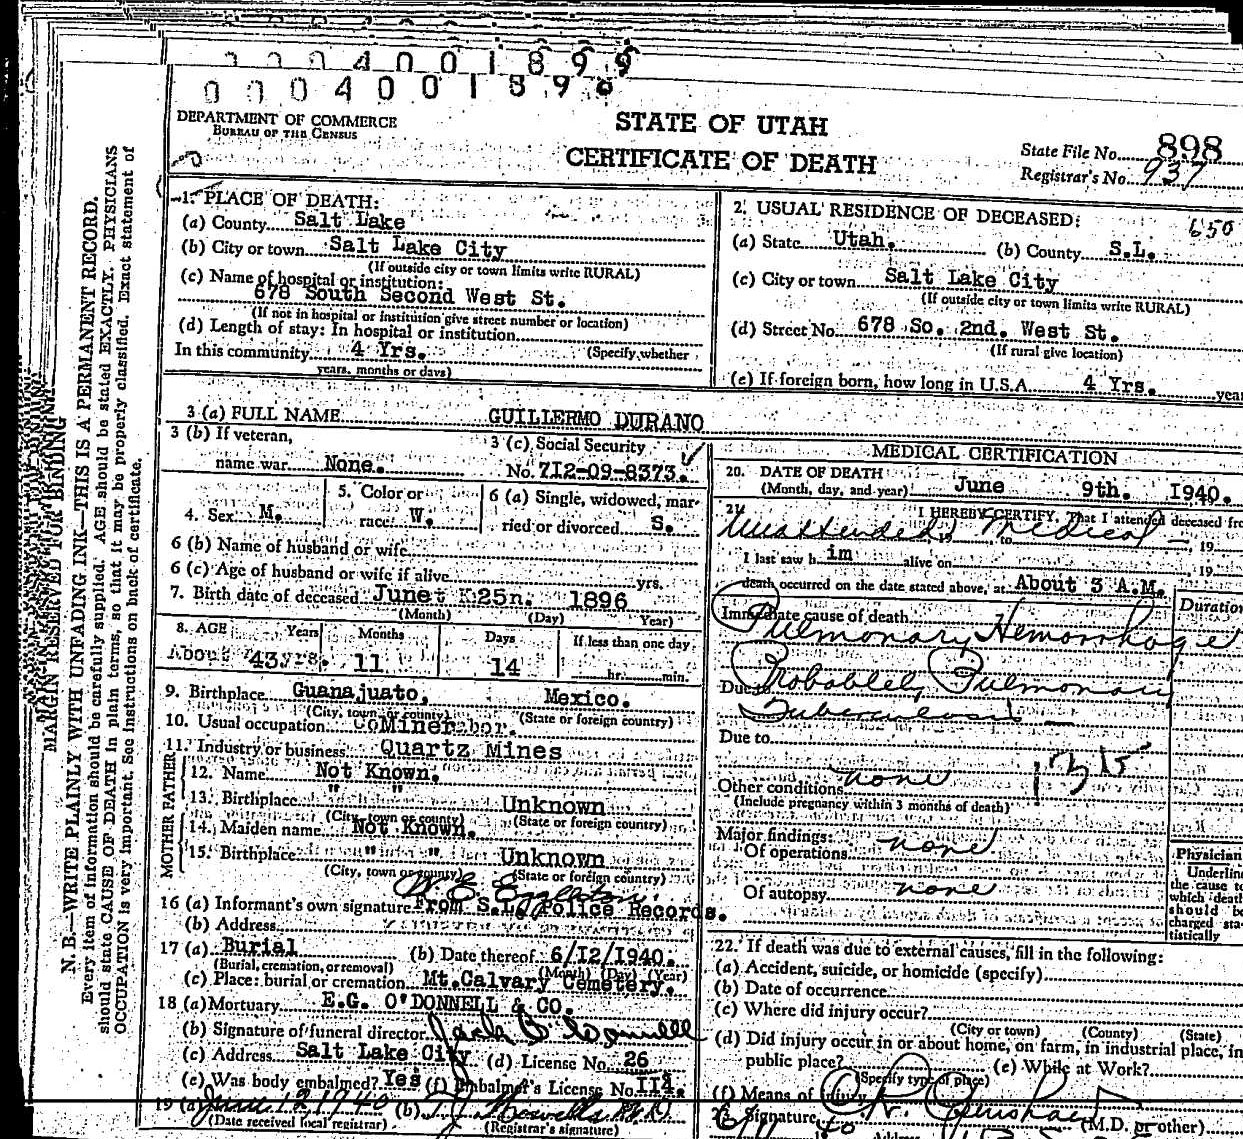 0004001899
0004001898
DEPARTMENT OF COMMERCE
BUREAU OF THE CENSUS
STATE OF UTAH
CERTIFICATE OF DEATH
State File No. 898
Registrar's No. 937
MARGIN RESERVED FOR BINDING
N. B.—WRITE PLAINLY WITH UNFADING INK—THIS IS A PERMANENT RECORD.
Every item of information should be carefully supplied. AGE should be stated EXACTLY. PHYSICIANS
should state CAUSE OF DEATH in plain terms, so that it may be properly classified. Exact statement of
OCCUPATION is very important. See instructions on back of certificate.
1. PLACE OF DEATH:
(a) County Salt Lake
(b) City or town Salt Lake City
(If outside city or town limits write RURAL)
(c) Name of hospital or institution:
678 South Second West St.
(If not in hospital or institution give street number or location)
(d) Length of stay: In hospital or institution
In this community 4 Yrs. (Specify whether
years, months or days)
2. USUAL RESIDENCE OF DECEASED: 650
(a) State Utah. (b) County S.L.
(c) City or town Salt Lake City
(If outside city or town limits write RURAL)
(d) Street No. 678 So. 2nd. West St.
(If rural give location)
(e) If foreign born, how long in U.S.A. 4 Yrs. year
3 (a) FULL NAME GUILLERMO DURANO
3 (b) If veteran,
name war None.
3 (c) Social Security
No. 712-09-8373.
4. Sex M.
5. Color or
race W.
6 (a) Single, widowed, mar-
ried or divorced S.
6 (b) Name of husband or wife
6 (c) Age of husband or wife if alive yrs.
7. Birth date of deceased June 25 1896
(Month) (Day) Year)
8. AGE Years Months Days If less than one day
About 43yrs. 11 14 hr. min.
9. Birthplace Guanajuato, Mexico.
(City, town or county) (State or foreign country)
10. Usual occupation Miner
11. Industry or business Quartz Mines
FATHER
12. Name Not Known.
13. Birthplace " " Unknown
(City, town or county) (State or foreign country)
MOTHER
14. Maiden name Not Known.
15. Birthplace " " Unknown
(City, town or county) (State or foreign country)
W. E. Eggleston.
16 (a) Informant's own signature From S.L. Police Records.
(b) Address
17 (a) Burial (b) Date thereof 6/12/1940.
(Burial, cremation, or removal) (Month) (Day) (Year)
(c) Place: burial or cremation Mt. Calvary Cemetery.
18 (a) Mortuary E.G. O'DONNELL & CO.
(b) Signature of funeral director
(c) Address Salt Lake City (d) License No. 26
(e) Was body embalmed? Yes (f) Embalmer's License No. 114.
19 (a) June 12 1940 (b)
(Date received local registrar) (Registrar's signature)
MEDICAL CERTIFICATION
20. DATE OF DEATH
(Month, day, and year) June 9th. 1940.
21. I HEREBY CERTIFY, That I attended deceased fro
Unattended Medical , 19
I last saw h im alive on , 19
death occurred on the date stated above, at About 3 A.M.
Duration
Immediate cause of death
Pulmonary Hemorrhage
Due to Probablely Pulmonary
Tuberculosis
Due to
Other conditions none
(Include pregnancy within 3 months of death)
Major findings:
Of operations none
Of autopsy none
Physician
Underline
the cause to
which death
should be
charged sta-
tistically
22. If death was due to external causes, fill in the following:
(a) Accident, suicide, or homicide (specify)
(b) Date of occurrence
(c) Where did injury occur?
(City or town) (County) (State)
(d) Did injury occur in or about home, on farm, in industrial place, in
public place? (e) While at Work?
(Specify type of place)
(f) Means of injury
23. Signature (M.D. or other)
Address